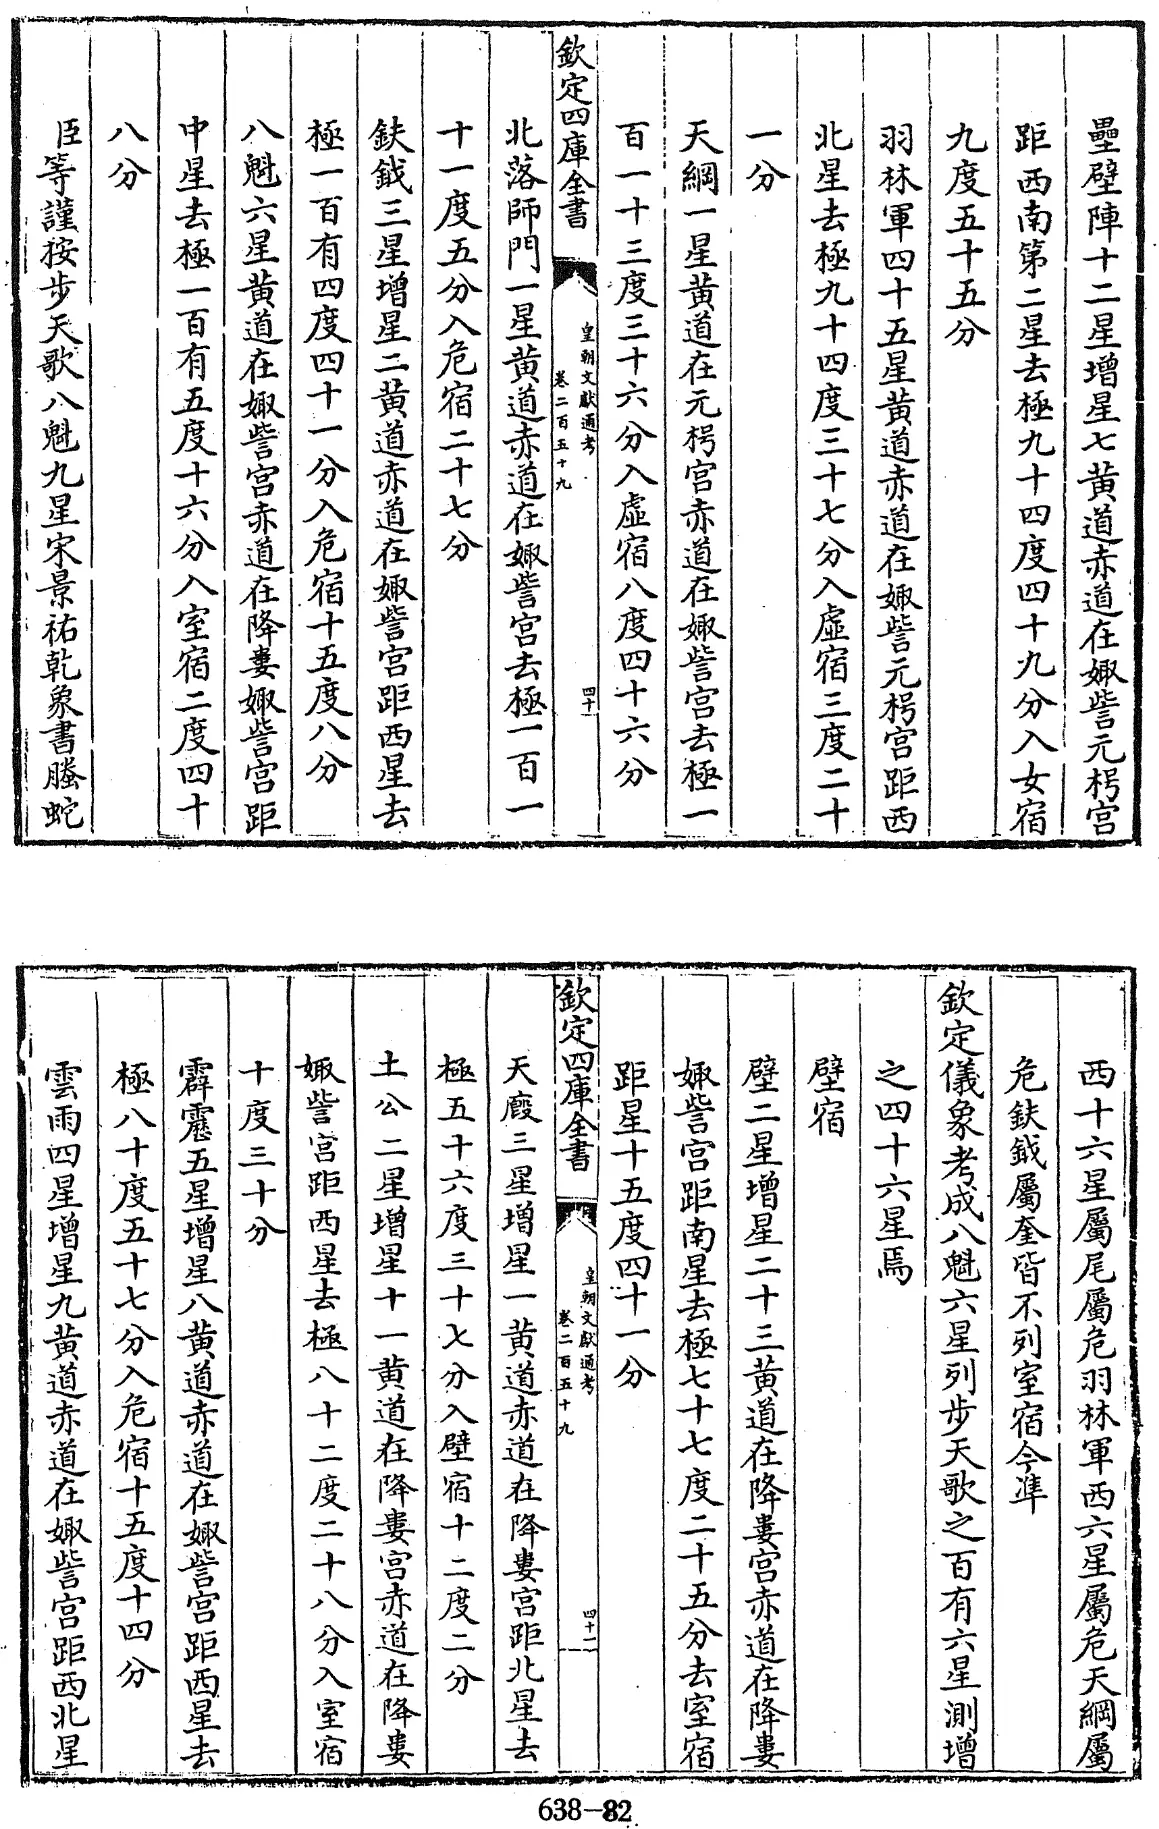 壘壁陣十二星增星七黃道赤道在娵訾元枵宮
距西南第二星去極九十四度四十九分入女宿
九度五十五分
羽林軍四十五星黃道赤道在娵訾元枵宮距西
北星去極九十四度三十七分入虛宿三度二十
一分
天綱一星黃道在元枵宮赤道在娵訾宮去極一
百一十三度三十六分入虛宿八度四十六分
欽定四庫全書
皇朝文獻通考
卷二百五十九
四十
北落師門一星黃道赤道在娵訾宮去極一百一
十一度五分入危宿二十七分
鈇鉞三星增星二黃道赤道在娵訾宮距西星去
極一百有四度四十一分入危宿十五度八分
八魁六星黃道在娵訾宮赤道在降婁娵訾宮距
中星去極一百有五度十六分入室宿二度四十
八分
臣等謹按步天歌八魁九星宋景祐乾象書螣蛇
西十六星屬尾屬危羽林軍西六星屬危天綱屬
危鈇鉞屬奎皆不列室宿今準
欽定儀象考成八魁六星列步天歌之百有六星測增
之四十六星焉
壁宿
壁二星增星二十三黃道在降婁宮赤道在降婁
娵訾宮距南星去極七十七度二十五分去室宿
距星十五度四十一分
欽定四庫全書
皇朝文獻通考
卷二百五十九
四十一
天廄三星增星一黃道赤道在降婁宮距北星去
極五十六度三十七分入壁宿十二度二分
土公二星增星十一黃道在降婁宮赤道在降婁
娵訾宮距西星去極八十二度二十八分入室宿
十度三十分
霹靂五星增星八黃道赤道在娵訾宮距西星去
極八十度五十七分入危宿十五度十四分
雲雨四星增星九黃道赤道在娵訾宮距西北星
638-82